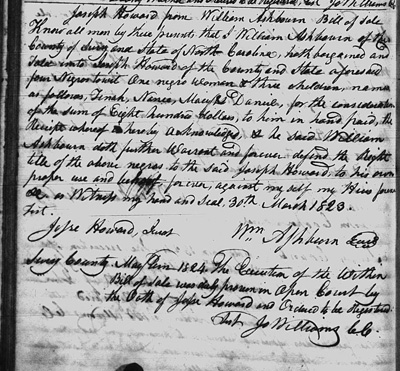 Joseph Howard from William Ashburn Bill of Sale
Know all men by these presents that I William Ashburn of the
County of Surry and State of North Carolina, hath bargained and
Sold unto Joseph Howard of the County and State aforesaid
four Negros to wit One negro woman & three children, name
as follows, Tenah, Nance, Mary & Daniel, for the consideration
of the sum of Eight hundred Dollars, to him in hand paid, the
Receipt whereof is hereby acknowledged & he said William
Ashburn doth further Warrant and forever defend the Right
title of the above negros to the said Joseph Howard, to his own
proper use and behoof for ever, against my self my Heirs forever
as Witness my hand and seal, 30th March 1823.
Test.
Jesse Howard, Jurat Wm Ashburn Seal
Surry County May Term 1824 The Execution of the Within
Bill of Sale was duly proven in Open Court by
the Oath of Jesse Howard and Ordered to be Registered
Test Jo Williams C.C.